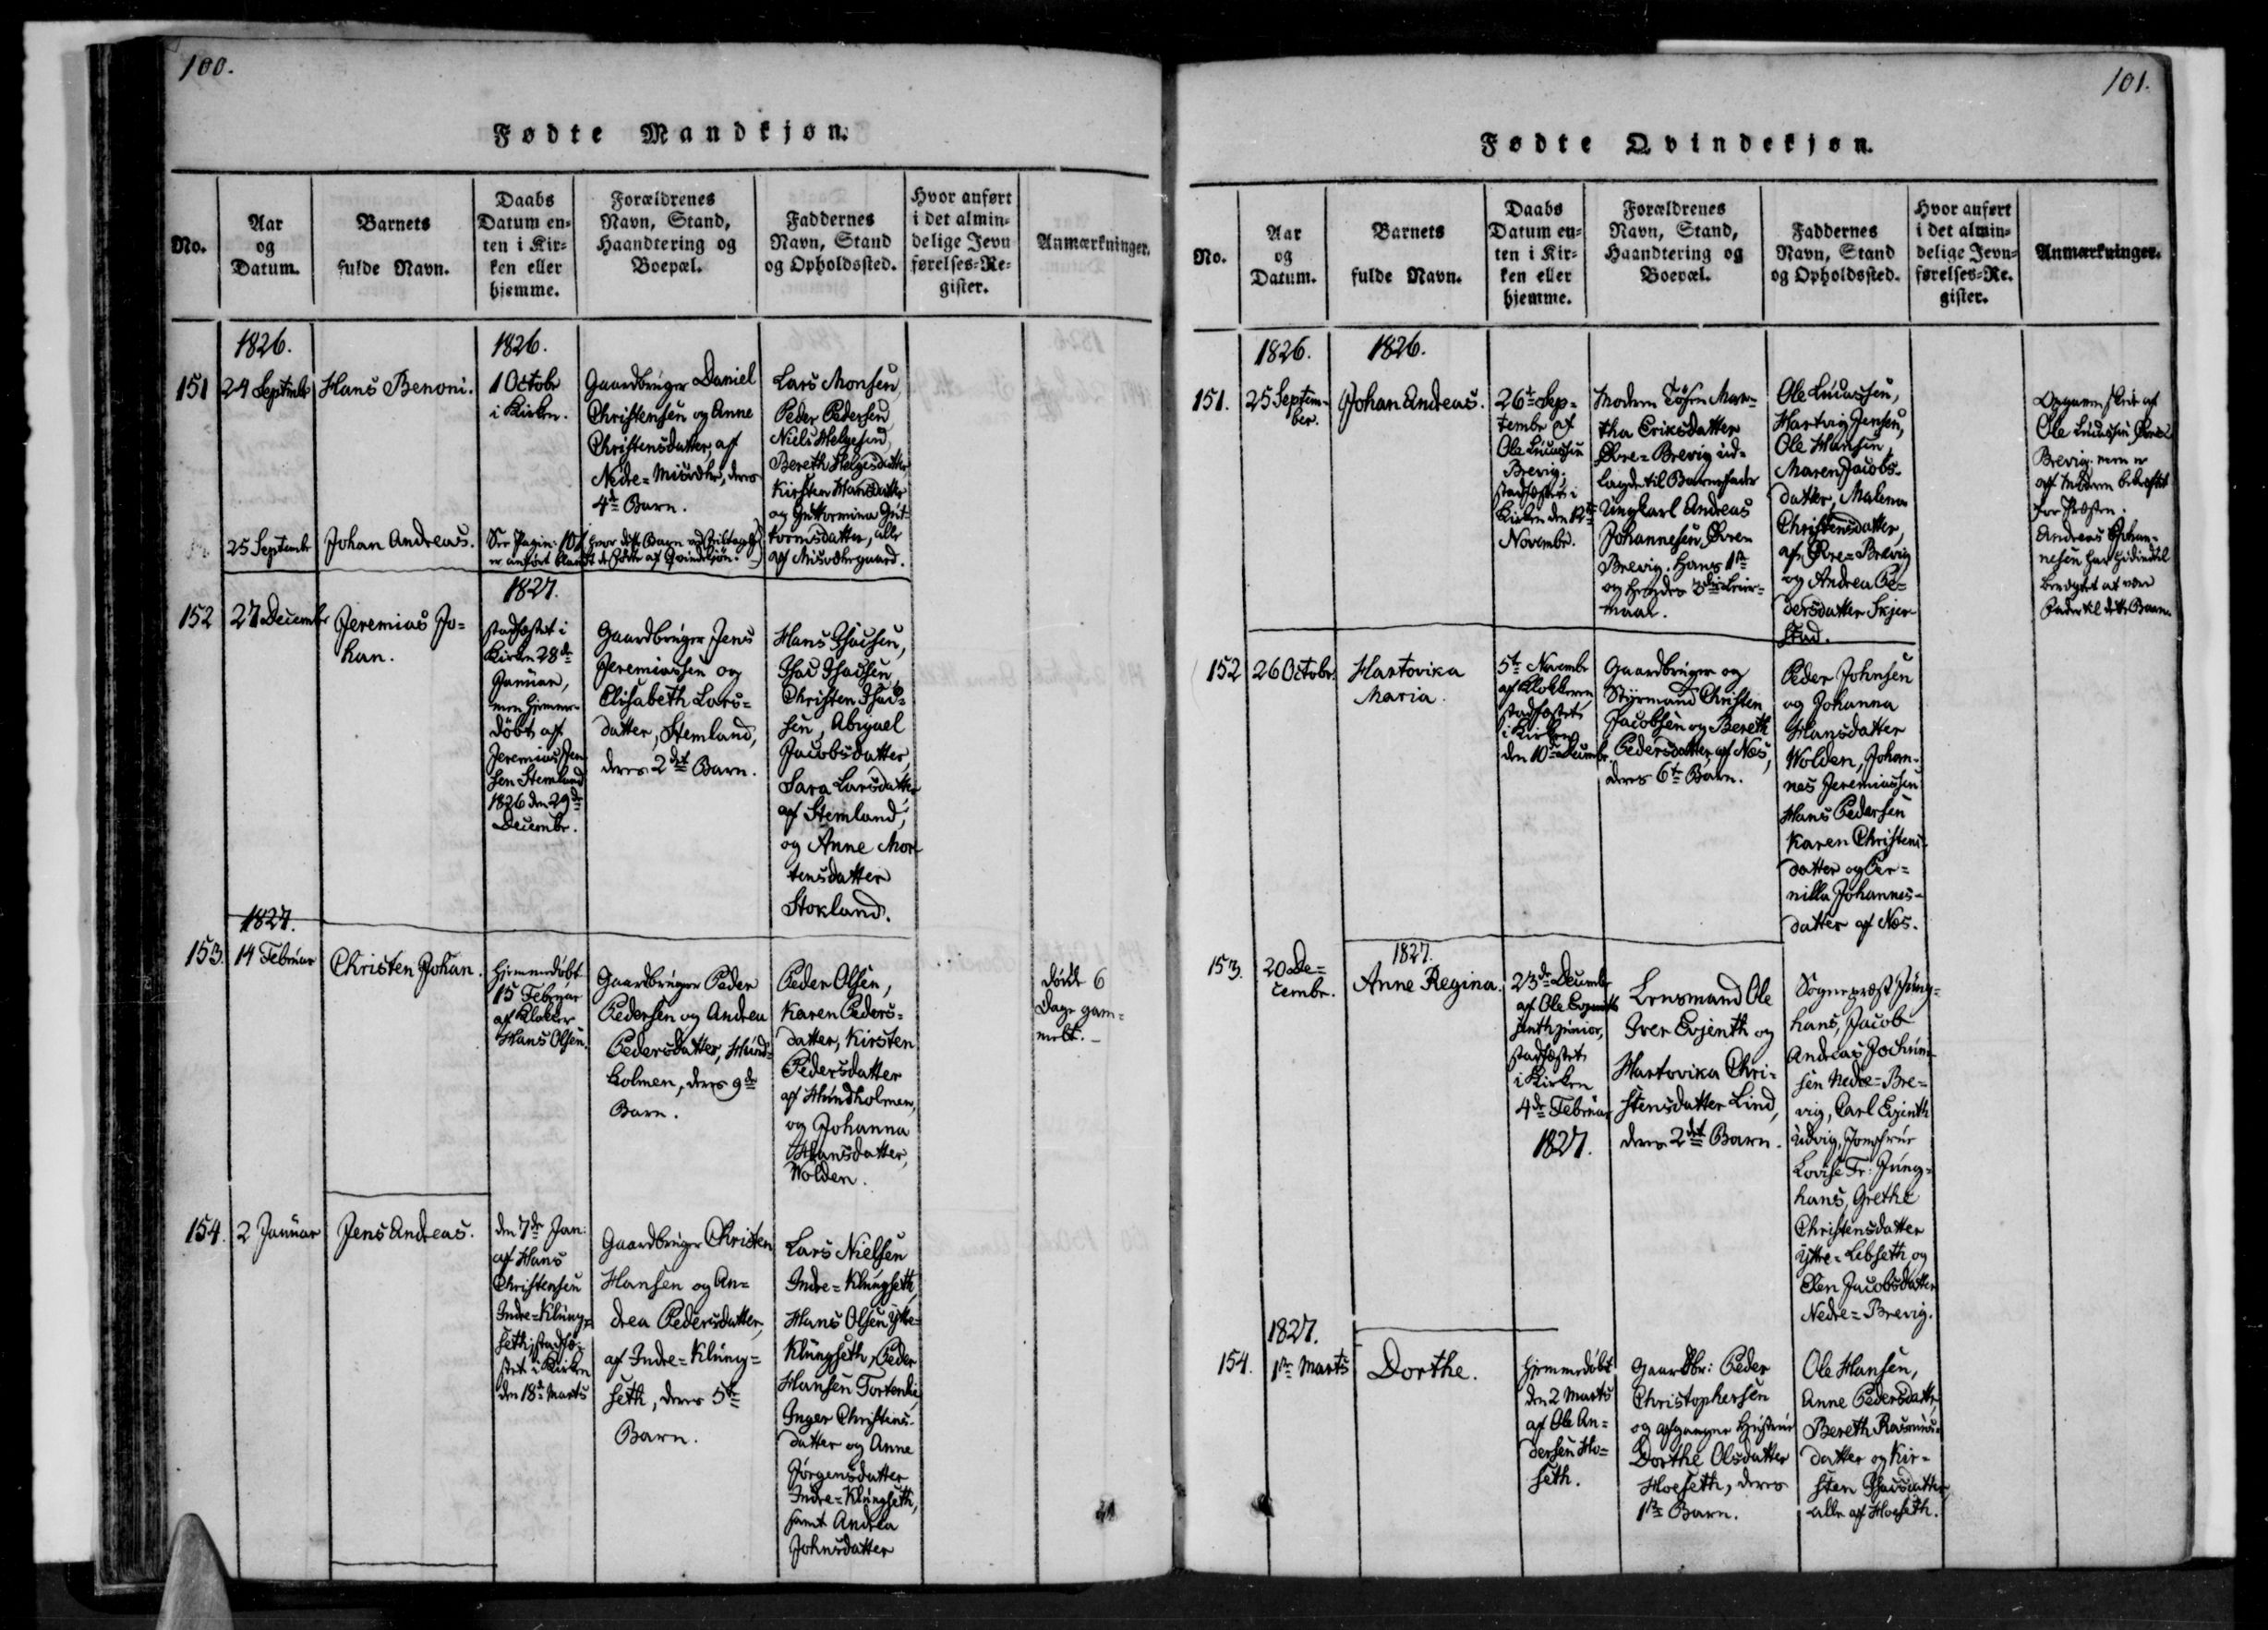 100.
Fødte Mandkjøn.
No.
Aar
og
Datum.
Barnets
fulde Navn.
Daabs
Datum en-
ten i Kir-
ken eller
hjemme.
Forældrenes
Navn, Stand,
Haandtering og
Boepæl.
Faddernes
Navn, Stand
og Opholdssted.
Hvor anført
i det almin-
delige Jevn
førelses-Re-
gister.
Anmærkninger.
1826.
151
24 Septembr
Hans Benoni.
1826.
1 Octobr
i Kirken.
Gaardbruger Daniel
Christensen og Anne
Christensdatter, af
Nedre=Misvær, deres
4de Barn.
Lars Monsen,
Peder Pedersen,
Niels Helgesen,
Bereth Helgesdatter
Kirsten Hansdatter
og Guttormina Gut-
tormsdatter, alle
af Misværgaard.
25 Septembr
Johan Andreas.
See Pagin: 101 hvor dette Barn
er anført blandt de Fødte af Qvindekjøn.
152
27 Decembr
Jeremias Jo-
han.
1827.
stadfæstet i
Kirken 28de
Januar,
men hjemme-
døbt af
Jeremias Jen-
sen Stemland
1826 den 29de
Decembr.
Gaardbruger Jens
Jeremiassen og
Elisabeth Lars-
datter, Stemland,
deres 2det Barn.
Hans Isacsen,
Isac Isacsen,
Christen Isac-
sen, Abigael
Jacobsdatter,
Sara Larsdatter
af Stemland,
og Anne Mor-
tensdatter
Stokland.
1827.
153.
14 Februar
Christen Johan.
hjemmedøbt
15 Februar
af Klokker
Hans Olsen.
Gaardbruger Peder
Pedersen og Andrea
Pedersdatter, Hund-
holmen, deres 9de
Barn.
Peder Olsen,
Karen Peders-
datter, Kirsten
Pedersdatter
af Hundholmen,
og Johanna
Hansdatter,
Wolden.
døde 6
Dage gam-
melt.
154.
2 Januar
Jens Andreas.
den 7de Jan:
af Hans
Christensen
Indre=Klung-
seth, stadfæ-
stet i Kirken
den 18de Marts
Gaardbruger Christen
Hansen og An-
drea Pedersdatter,
af Indre=Klung-
seth, deres 5te
Barn.
Lars Nielsen
Indre=Klungseth,
Hans Olsen Ytre
Klungseth, Peder
Hansen
Inger Christens-
datter og Anne
Jørgensdatter
Indre=Klungseth,
samt Andrea
Johnsdatter
101.
Fødte Qvindekjøn.
No.
Aar
og
Datum.
Barnets
fulde Navn.
Daabs
Datum en-
ten i Kir-
ken eller
hjemme.
Forældrenes
Navn, Stand,
Haandtering og
Boepæl.
Faddernes
Navn, Stand
og Opholdssted.
Hvor anført
i det almin-
delige Jevn-
førelses-Re-
gister.
Anmærkninger.
1826.
1826.
151.
25 Septem-
ber.
Johan Andreas.
26te Sep-
tembr af
Ole Lucassen
Brevig.
stadfæstet i
Kirken den 12te
Novembr.
Modren Tøsen Mar-
tha Eriksdatter
Øvre=Brevig ud-
lagde til Barnefader
Ungkarl Andreas
Johannesen, Øvre
Brevig. Hans 1ste
og hendes 3die Leier-
maal.
Ole Lucassen,
Hartvig Jensen,
Ole Hansen,
Maren Jacobs-
datter, Malena
Christensdatter,
af Øvre=Brevig
og Andrea Pe-
dersdatter Skjer-
stad.
Ole Lucassen Øvre
Brevig, men er
af Modren bekræftet
for Præsten.
Andreas Johan-
nesen har
benegtet at være
Fader til dette Barn.
152
26 Octobr.
Hartvika
Maria.
5te Novembr
af Klokkeren
stadfæstet
i Kirken
den 10de Decembr.
Gaardbruger og
Styrmand Christen
Jacobsen og Bereth
Pedersdatter, af Næs,
deres 6te Barn.
Peder Johnsen
og Johanna
Hansdatter
Wolden, Johan-
nes Jeremiassen
Hans Pedersen
Karen Christens-
datter og Per-
nilla Johannes-
datter af Næs.
153.
20 De-
cembr.
1827.
Anne Regina.
23de Decembr
af Ole Evjenth
junior,
stadfæstet
i Kirken
4de Februar
1827.
Lensmand Ole
Iver Evjenth og
Hartvika Chri-
stensdatter Lind,
deres 2det Barn.
Sognepræst Jung-
hans, Jacob
Andreas Jochum-
sen Nedre=Bre-
vig, Carl Evjenth
Udvig, Jomfrue
Lovise Fr: Jung-
hans, Grethe
Christensdatter
Ytre=Lebseth og
Elen Jacobsdatter
Nedre=Brevig.
1827.
154.
1ste Marts
Dorthe.
hjemmedøbt
den 2 Marts
af Ole An-
dersen Ho-
seth.
Gaardbr: Peder
Christophersen
og Hustrue
Dorthe Olsdatter
Hoeseth, deres
1ste Barn.
Ole Hansen,
Anne Pedersdatter,
Bereth Rasmus-
datter og Kir-
sten Isacsdatter,
alle af Hoeseth.